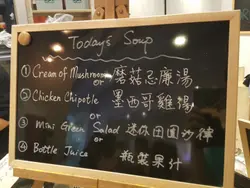 Today's Soup
① Cream of Mushroom 蘑菇忌廉湯
or
② Chicken Chipotle 墨西哥雞湯
or
③ Mini Green Salad 迷你田園沙律
④ Bottle Juice 瓶裝果汁